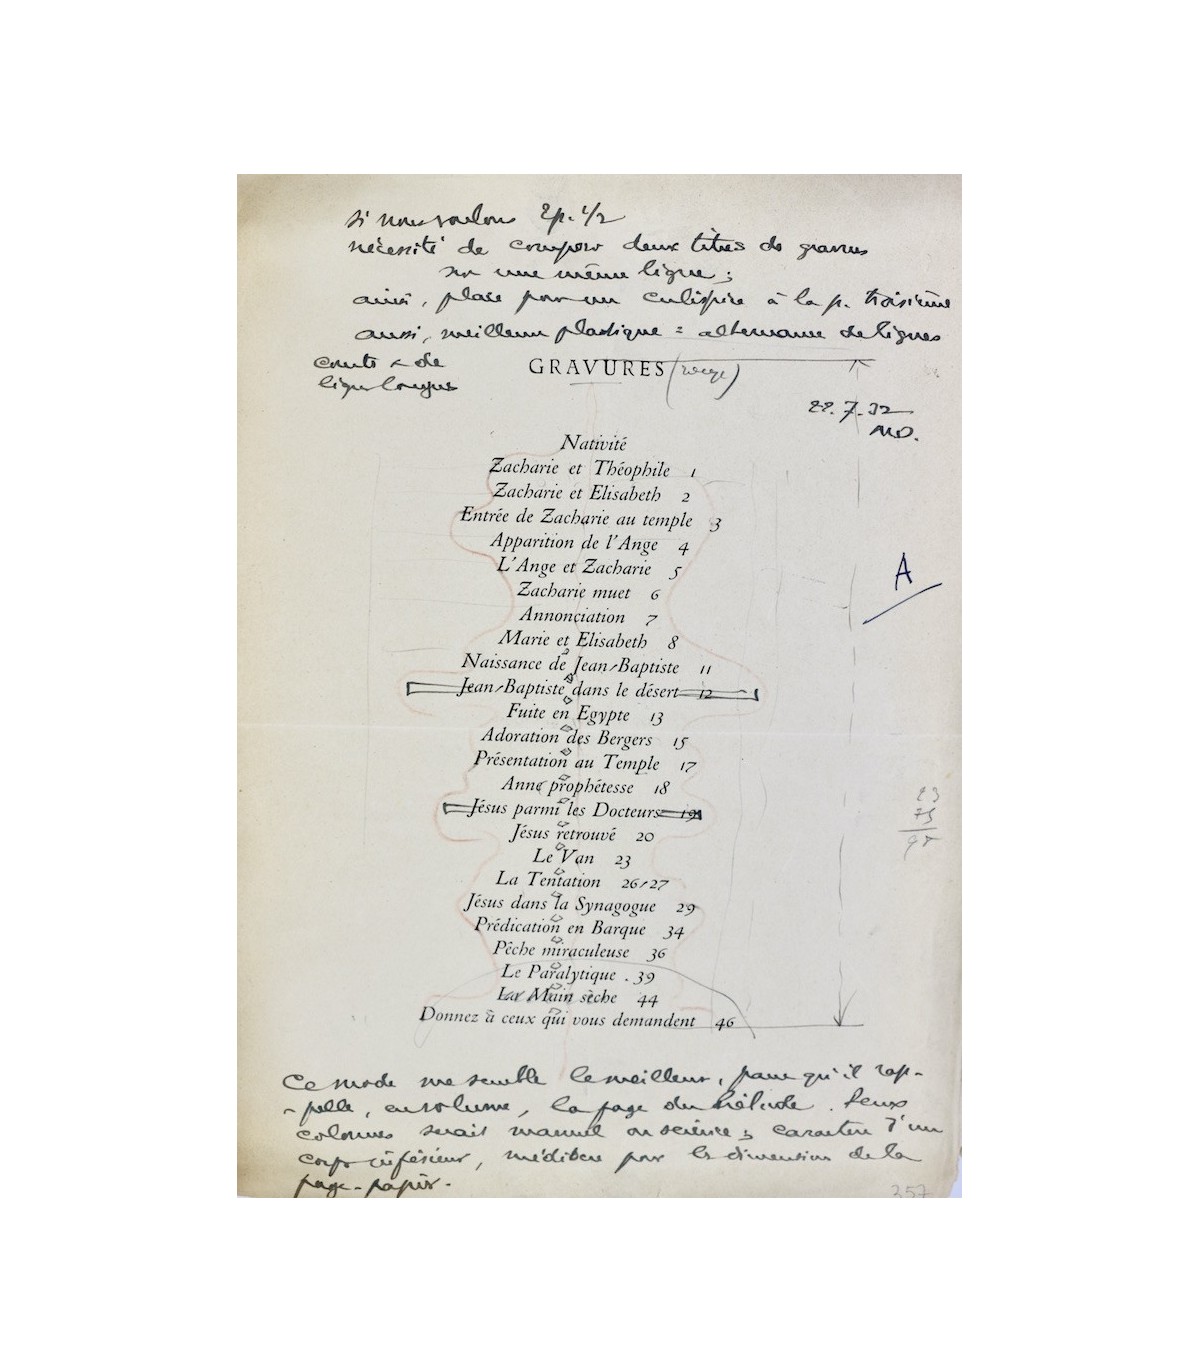 si nous voulons 2 p. 1/2
nécessité de composer deux titres de gravures
sur une même ligne ;
ainsi, place pour un cul à la p. troisième
aussi, meilleure plastique = alternance de lignes
courtes & de
lignes longues
GRAVURES (rouge)
22.7.32
A
Nativité
Zacharie et Théophile 1
Zacharie et Elisabeth 2
Entrée de Zacharie au temple 3
Apparition de l'Ange 4
L'Ange et Zacharie 5
Zacharie muet 6
Annonciation 7
Marie et Elisabeth 8
Naissance de Jean-Baptiste 11
Jean-Baptiste dans le désert 12
Fuite en Egypte 13
Adoration des Bergers 15
Présentation au Temple 17
Anne prophétesse 18
Jésus parmi les Docteurs 19
Jésus retrouvé 20
Le Van 23
La Tentation 26-27
Jésus dans la Synagogue 29
Prédication en Barque 34
Pêche miraculeuse 36
Le Paralytique . 39
La Main sèche 44
Donnez à ceux qui vous demandent 46
23
75
98
Ce mode me semble le meilleur, parce qu'il rap-
-pelle, en volume, la page du . Deux
colonnes serait manuel ou science ; caractère d'un
corps inférieur, médiocre pour la dimension de la
page-papier.
357